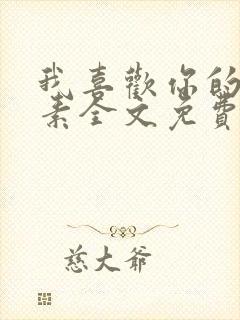 我喜歡你的
素全文免費
慈大爺